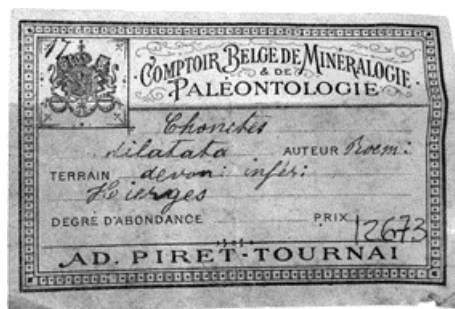 17
COMPTOIR BELGE DE MINÉRALOGIE
& DE
PALÉONTOLOGIE
Chonetes
dilatata AUTEUR Roem:
TERRAIN devon: infér:
Hierges
DEGRÉ D'ABONDANCE PRIX 12673
AD. PIRET-TOURNAI